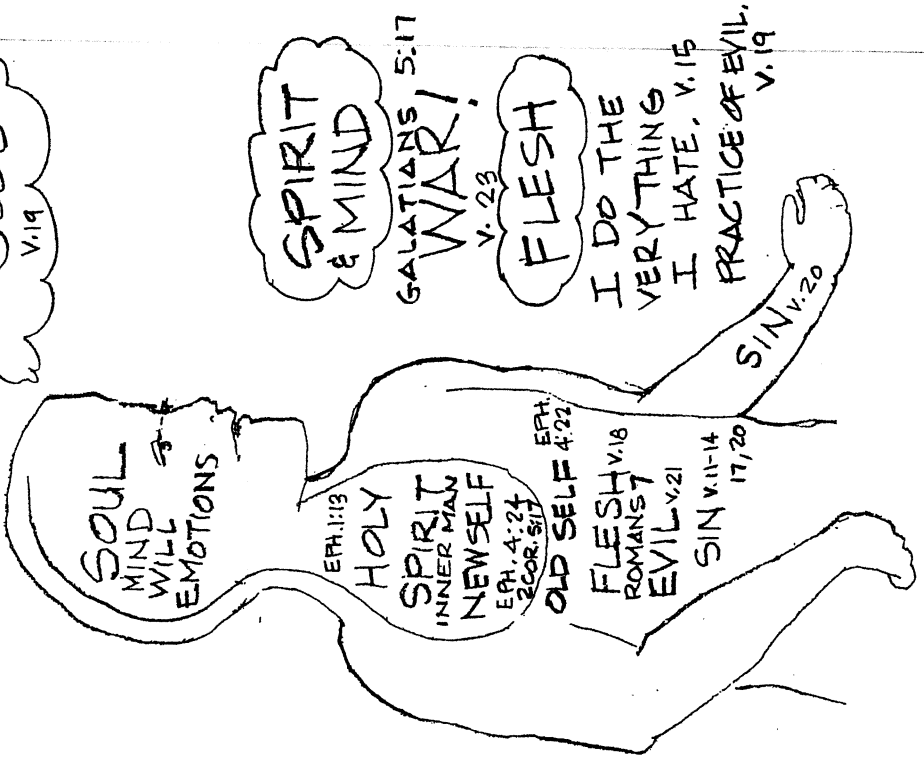 v.19
SOUL
MIND
WILL
EMOTIONS
EPH.1:13
HOLY
SPIRIT
INNER MAN
NEW SELF
EPH. 4:24
2COR. 5:17
OLD SELF EPH. 4:22
FLESH v.18
ROMANS 7
EVIL v.21
SIN v.11-14
17,20
SIN v.20
SPIRIT
& MIND
GALATIANS 5:17
WAR!
v. 23
FLESH
I DO THE
VERY THING
I HATE. v.15
PRACTICE OF EVIL.
v.19